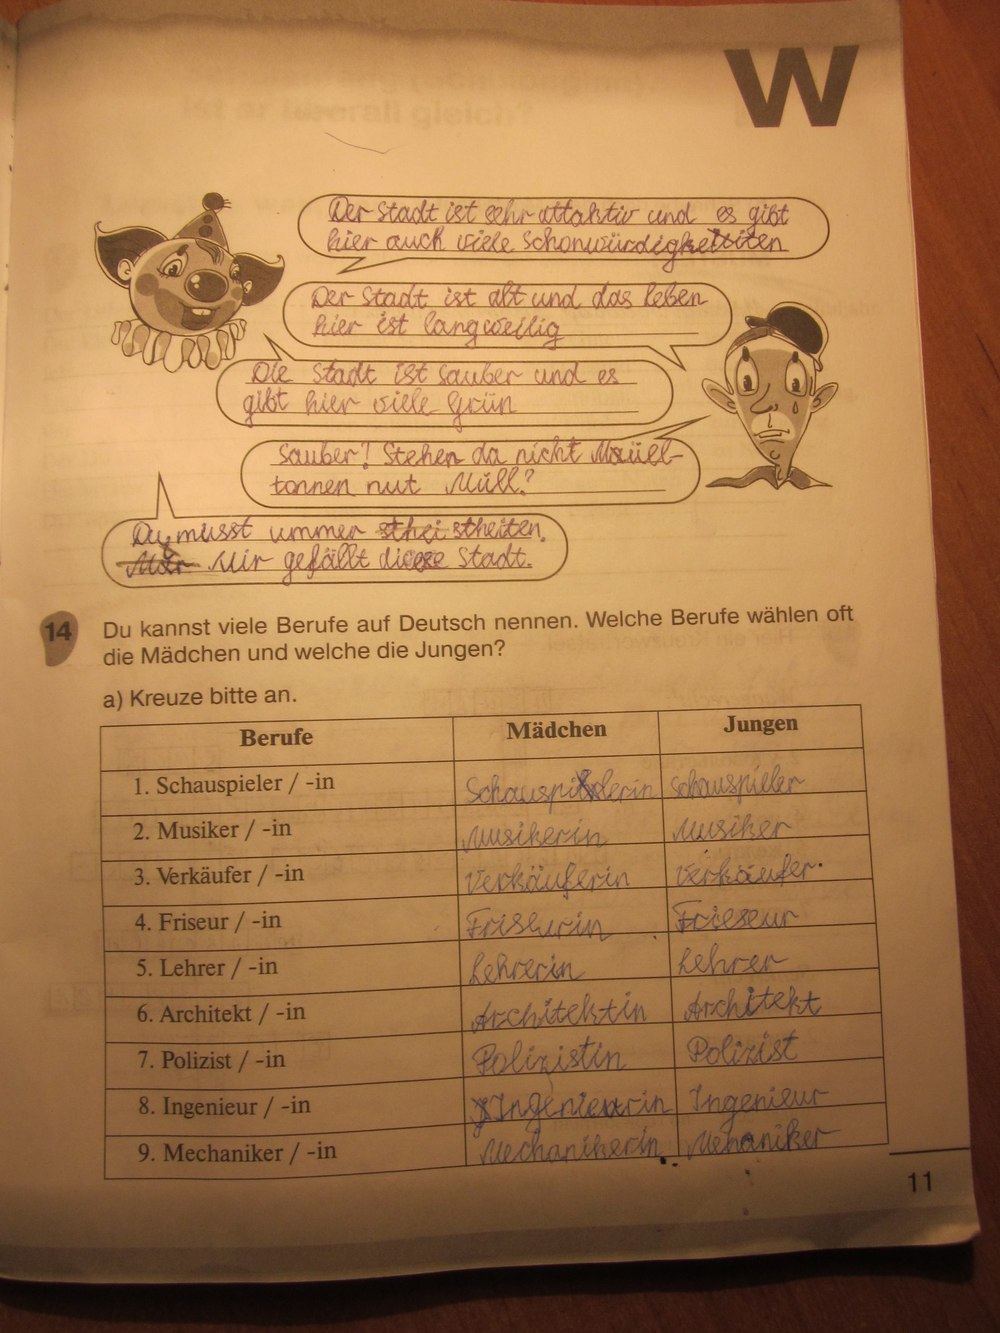 W
Der Stadt ist sehr attaktiv und es gibt
hier auch viele Schonwürdigkeititen
Der Stadt ist alt und das leben
hier ist langweilig
Die Stadt ist sauber und es
gibt hier viele Grün
Sauber! Stehen da nicht Müll-
tonnen nut Müll?
Du musst ummer streiten.
Mir gefällt diese Stadt.
14 Du kannst viele Berufe auf Deutsch nennen. Welche Berufe wählen oft
die Mädchen und welche die Jungen?
a) Kreuze bitte an.
Berufe Mädchen Jungen
1. Schauspieler / -in Schauspielerin Schauspieler
2. Musiker / -in Musikerin Musiker
3. Verkäufer / -in Verkäuferin Verkäufer
4. Friseur / -in Friseurin Frieseur
5. Lehrer / -in Lehrerin Lehrer
6. Architekt / -in Architektin Architekt
7. Polizist / -in Polizistin Polizist
8. Ingenieur / -in Ingenieurin Ingenieur
9. Mechaniker / -in Mechanikerin Mehaniker
11